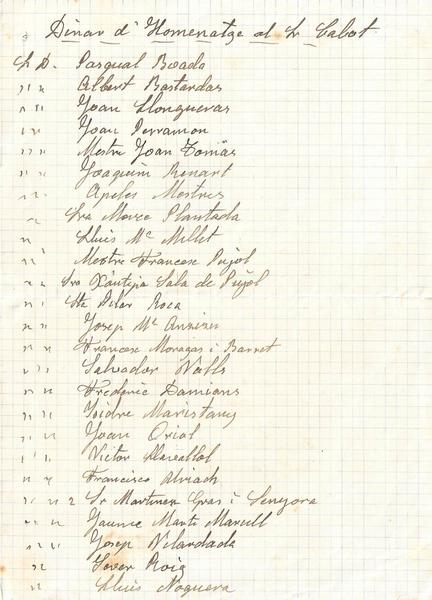 Dinar d'Homenatge al Sr Cabot
Sr D. Pasqual Boada
" " Albert Bastardas
" " Joan Llongueras
" " Joan Perramon
" " Mestre Joan Tomàs
" " Joaquim Renart
" " Apeles Mestres
" Sra Merce Plantada
" Lluis Mª Millet
" Mestre Francesc Pujol
" " Sra Xantipa Sala de Pujol
" " Sta Pilar Roca
" " Josep Mª
" " Francesc Moragas i Barret
" " Salvador Valls
" " Frederic Damians
" " Isidre Maristany
" " Joan Oriol
" " Victor
" " Francisco
" " 2 Sr Martinez Gras i Senyora
" " Jaume Marti Marull
" " Josep Vilardada
" Roig
" Lluis Noguera